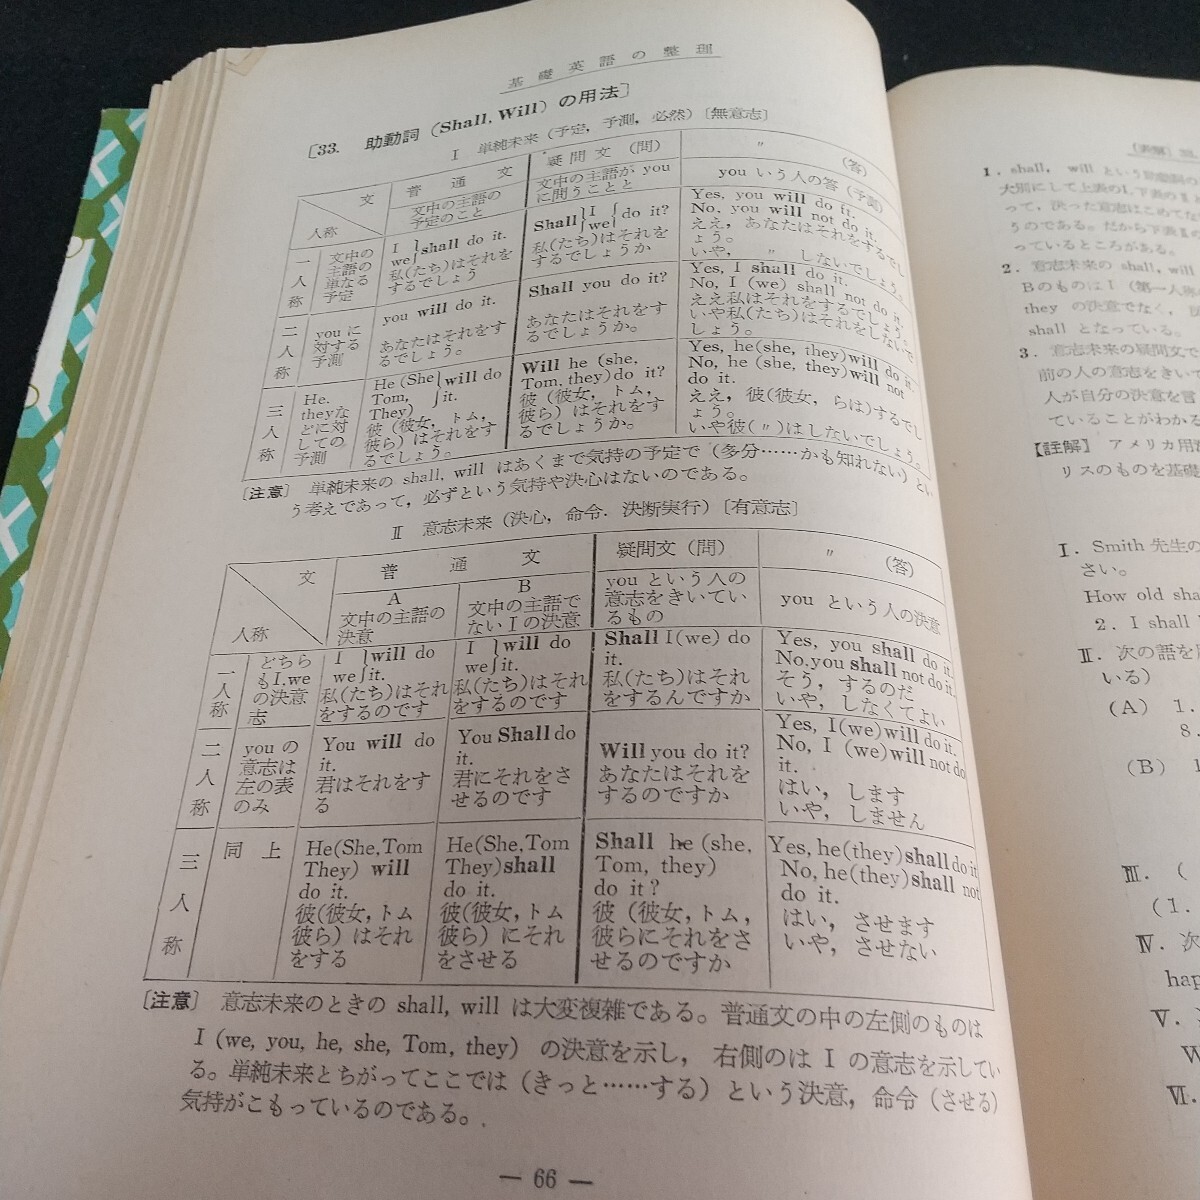 基礎英語の整理
〔33. 助動詞 (Shall, Will) の用法〕
Ⅰ 単純未来（予定，予測，必然）〔無意志〕
文
人称
普通文
文中の主語の
予定のこと
疑問文（問）
文中の主語が you
に問うことと
〃 （答）
you いう人の答（予測）
一人称
文中の
主語の
単なる
予定
I
we
shall do it.
私(たち)はそれを
するでしょう
Shall
I
we
do it?
私(たち)はそれを
するでしょうか
Yes, you will do it.
No, you will not do it.
ええ，あなたはそれをするでし
ょう。
いや， 〃 しないでしょう。
二人称
you に
対する
予測
you will do it.
あなたはそれをす
るでしょう。
Shall you do it?
あなたはそれをす
るでしょうか。
Yes, I shall do it.
No, I (we) shall not do it.
ええ私はそれをするでしょう。
いや私(たち)はそれをしないで
しょう。
三人称
He.
theyな
どに対
しての
予測
He (She
Tom,
They)
will do
it.
彼（彼女，トム，
彼ら）はそれをす
るでしょう。
Will he (she,
Tom, they) do it?
彼（彼女，トム，
彼ら）はそれをす
るでしょうか。
Yes, he(she, they) will do it.
No, he (she, they) will not
do it.
ええ，彼(彼女，らは)するでし
ょう。
いや彼(〃)はしないでしょう。
〔注意〕 単純未来の shall, will はあくまで気持の予定で（多分……かも知れない）とい
う考えであって，必ずという気持や決心はないのである。
Ⅱ 意志未来（決心，命令．決断実行）〔有意志〕
文
人称
普通文
A
文中の主語の
決意
B
文中の主語で
ない I の決意
疑問文（問）
you という人の
意志をきいてい
るもの
〃 （答）
you という人の決意
一人称
どちら
も I. we
の決意
志
I
we
will do
it.
私(たち)はそれ
をするのです
I
we
will do
it.
私(たち)はそれ
をするのです
Shall I (we) do
it.
私(たち)はそれ
をするんですか
Yes, you shall do it.
No. you shall not do it.
そう，するのだ
いや，しなくてよい
二人称
you の
意志は
左の表
のみ
You will do
it.
君はそれをす
る
You Shall do
it.
君にそれをさ
せるのです
Will you do it?
あなたはそれを
するのですか
Yes, I(we) will do it.
No, I (we) will not do
it.
はい，します
いや，しません
三人称
同上
He(She, Tom
They) will
do it.
彼(彼女，トム
彼ら）はそれ
をする
He(She, Tom
They) shall
do it.
彼(彼女，トム
彼ら）にそれ
をさせる
Shall he (she,
Tom, they)
do it ?
彼（彼女，トム，
彼らにそれをさ
せるのですか
Yes, he(they) shall do it
No, he(they) shall not
do it.
はい，させます
いや，させない
〔注意〕 意志未来のときの shall, will は大変複雑である。普通文の中の左側のものは
I (we, you, he, she, Tom, they) の決意を示し，右側のは I の意志を示してい
る。単純未来とちがってここでは（きっと……する）という決意，命令（させる）
気持がこもっているのである。
— 66 —
1. shall, will という助動詞の
大別にして上表のⅠ.下表のⅡ
って，決った意志はこめてな
うのである。だから下表Ⅱの
っているところがある。
2. 意志未来の shall, will
Bのものは I （第一人称
they の決意でなく，
shall となっている。
3. 意志未来の疑問文で
前の人の意志をきいて
人が自分の決意を言
ていることがわかる
【註解】 アメリカ用
リスのものを基礎
Ⅰ. Smith 先生の
さい。
How old sha
2. I shall
Ⅱ. 次の語を
いる）
(A) 1.
8.
(B) 1
Ⅲ. （
(1.
Ⅳ. 次
hap
Ⅴ.
W
Ⅵ.